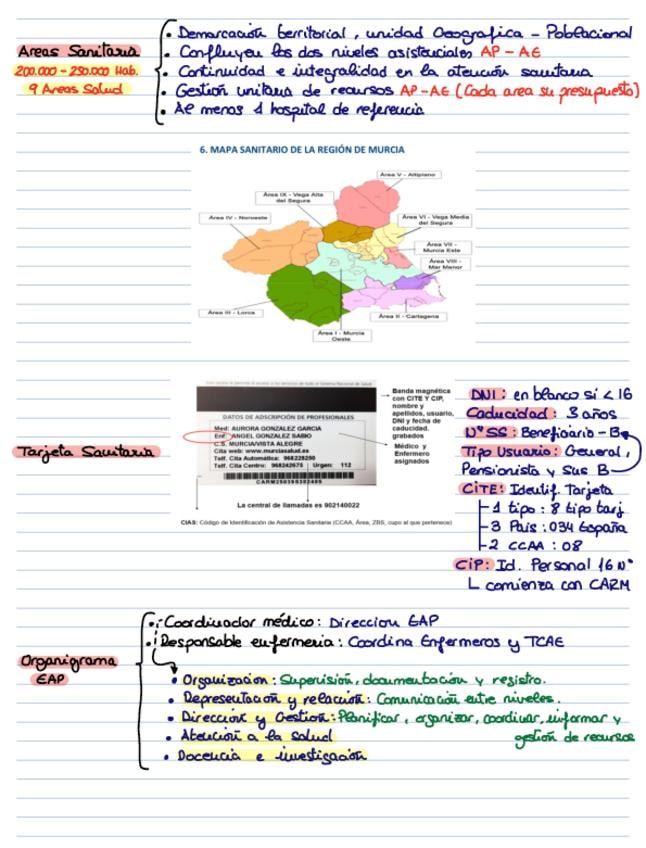 Areas Sanitaria
200.000 - 250.000 Hab.
9 Areas Salud
• Demarcación territorial, unidad Geografica - Poblacional
• Confluyen los dos niveles asistenciales AP - AE
• Continuidad e integralidad en la atención sanitaria
• Gestión unitaria de recursos AP-AE (Cada area su presupuesto)
• Al menos 1 hospital de referencia
6. MAPA SANITARIO DE LA REGIÓN DE MURCIA
Área V - Altiplano
Área IX - Vega Alta del Segura
Área IV - Noroeste
Área VI - Vega Media del Segura
Área VII - Murcia Este
Área VIII - Mar Menor
Área III - Lorca
Área II - Cartagena
Área I - Murcia Oeste
Tarjeta Sanitaria
DATOS DE ADSCRIPCIÓN DE PROFESIONALES
Med: AURORA GONZALEZ GARCIA
Enf: ANGEL GONZALEZ SABIO
C.S. MURCIA/VISTA ALEGRE
Cita web: www.murciasalud.es
Telf. Cita Automática: 968228250
Telf. Cita Centro: 968242675 | Urgen: 112
Banda magnética
con CITE Y CIP,
nombre y
apellidos, usuario,
DNI y fecha de
caducidad.
grabados
Médico y
Enfermero
asignados
La central de llamadas es 902140022
CIAS: Código de Identificación de Asistencia Sanitaria (CCAA, Área, ZBS, cupo al que pertenece)
DNI: en blanco si < 16
Caducidad: 3 años
Nº SS: Beneficiario - B
Tipo Usuario: General,
Pensionista y Sus B
CITE: Identif. Tarjeta
- 1 tipo: 8 tipo tarj
- 3 Pais: 034 España
- 2 CCAA: 08
CIP: Id. Personal 16 Nº
comienza con CARM
Organigrama
EAP
• Coordinador médico: Direccion EAP
• Responsable enfermeria: Coordina Enfermeros y TCAE
• Organizacion: Supervisión, documentación y registro.
• Representación y relación: Comunicación entre niveles.
• Dirección y Gestión: Planificar, organizar, coordinar, informar y
gestión de recursos
• Atención a la salud
• Docencia e investigación